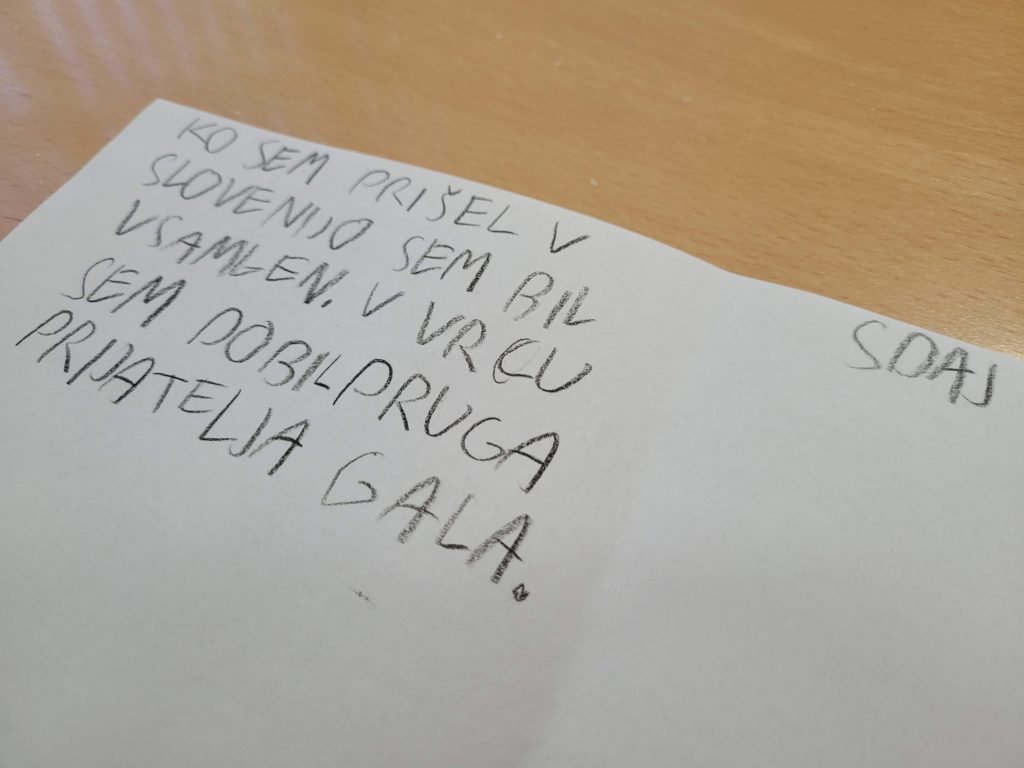 KO SEM PRIŠEL V
SLOVENIJO SEM BIL
VSAMLEN. V VRCU
SEM DOBIL DRUGA
PRIJATELJA GALA.
SDAJ